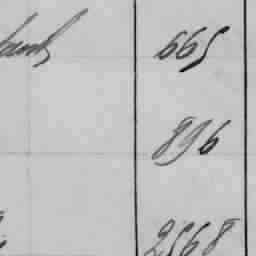 665
896
2568